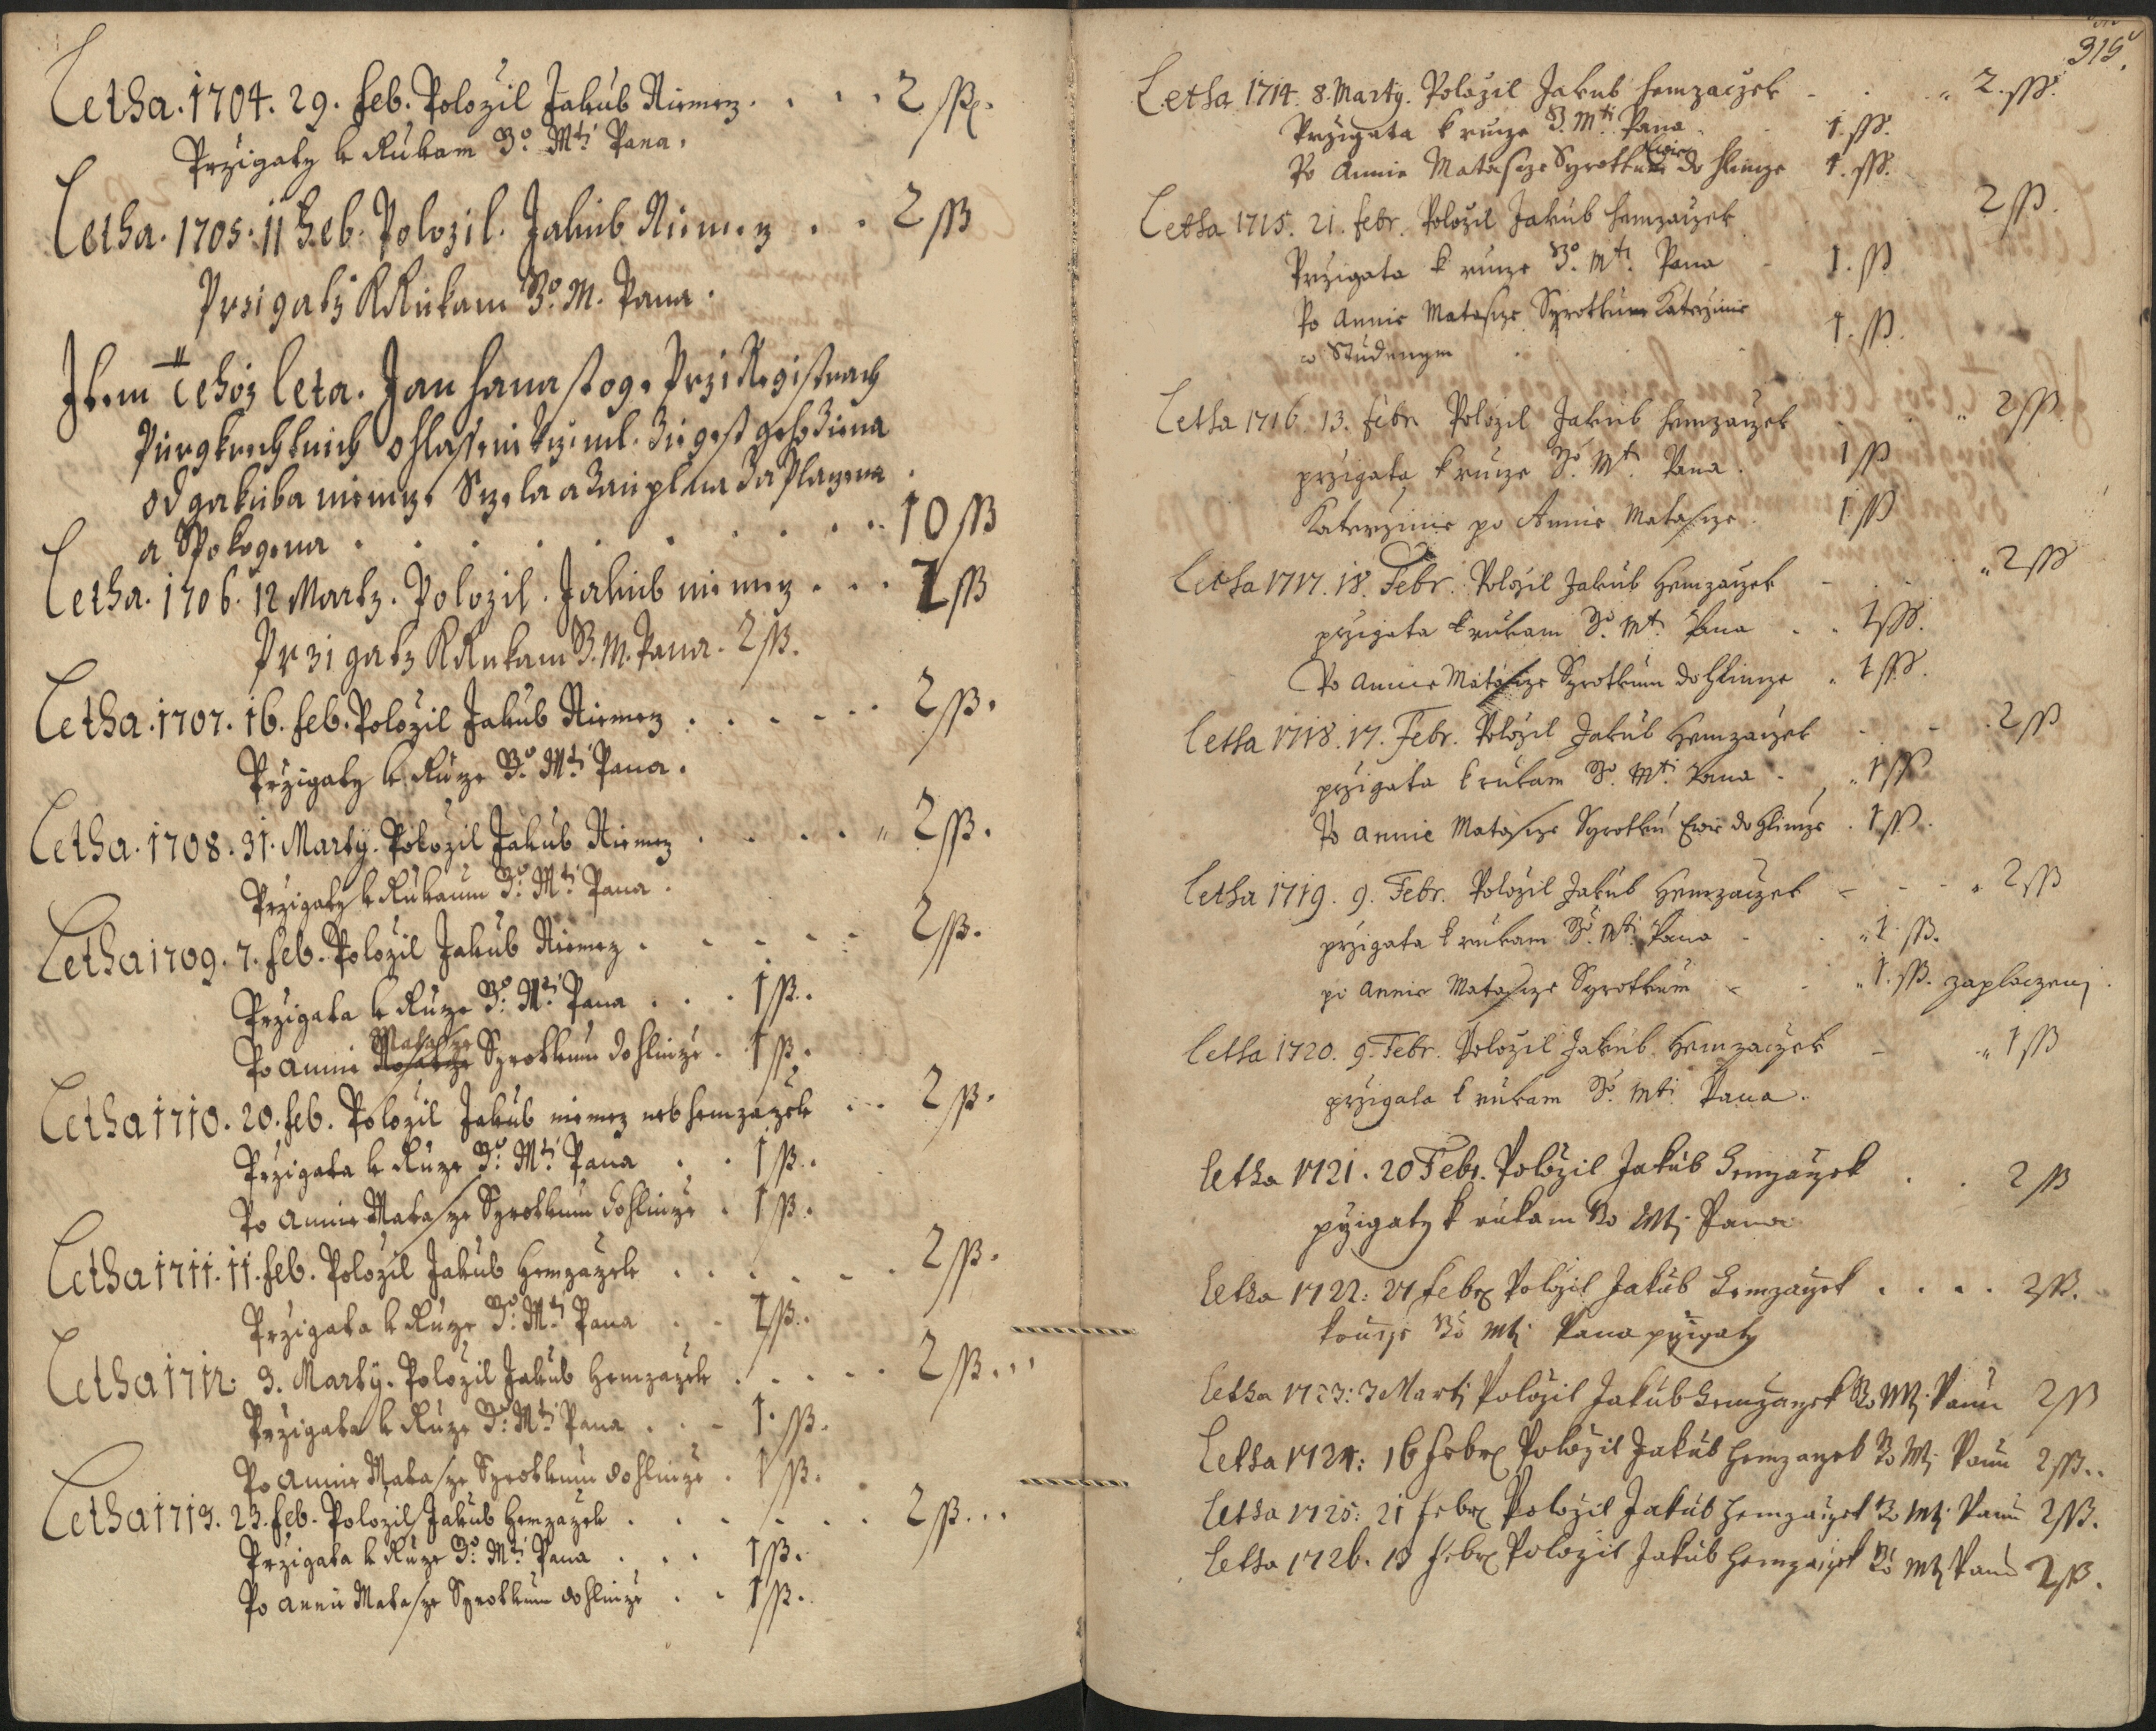 Letha. 1704. 29. Feb. Polozil Jakub Niemez. . . . 2 sß.
Przigaty k Rukam Bo Mti Pana.
Letha. 1705. 11 Feb. Polozil. Jakub Niemez . . 2 sß
Przigaty K Rukam Bo. M. Pana.
Item tehoz leta. Jan hanas stoge Przi Registrach
Purgkrechtnich ohlassenii
od gakuba niemcze a zauplna zaplazena
a Spokogena . . . . . . . 10 sß
Letha. 1706. 12 Marty. Polozil. Jakub niemez . . . 2 sß
Przigaty K Rukam B. M. Pana. 2 sß.
Letha. 1707. 16. Feb. Polozil Jakub Niemez . . . . . . 2 sß.
Przigaty k Ruze Bo. Mti Pana.
Letha. 1708. 31. Marty. Polozil Jakub Niemez . . . . 2 sß.
Przigaty k Rukaum Bo. Mti Pana.
Letha 1709. 7. Feb. Polozil Jakub Niemez . . . . . 2 sß.
Przigata k Ruze Bo. Mti Pana . . . 1 sß.
Matassze
Po Annie Syrotkum do hlinze . 1 sß.
Letha 1710. 20. Feb. Polozil Jakub niemez neb hemzazek . . . 2 sß.
Przigata k Ruze Bo. Mti Pana . . 1 sß.
Po Annie Matassze Syrotkum do hlinze . 1 sß.
Letha 1711. 11. Feb. Polozil Jakub Hemzazek . . . . . . 2 sß.
Przigata k Ruze Bo. Mti Pana . . 1 sß.
Letha 1712. 3. Marty. Polozil Jakub Hemzazek . . . . . 2 sß. . .
Przigata k Ruze Bo. Mti Pana . . . 1. sß.
Po Annie Matassze Syrotkum do hlinze . 1 sß.
Letha 1713. 23. Feb. Polozil Jakub Hemzazek . . . . . . 2 sß. . .
Przigata k Ruze Bo. Mti Pana . . . 1 sß.
Po Annie Matassze Syrotkum do hlinze . . 1 sß.
315.
Letha 1714. 8. Marty. Polozil Jakub hemzaczek - . . 2. sß.
Przigata k rucze B. Mti. Pana . 1. sß.
Ewie
Po Annie Matassze Syrotkum do hlincze 1. sß.
Letha 1715. 21. febr. Polozil Jakub hemzaczek . 2 sß.
Przigata k rucze Bo. Mti. Pana - 1. sß
Po Annie Matassze Syrotkum Katerzinie
w Studenym . . 1. sß.
Letha 1716. 13. febr. Polozil Jakub hemzaczek . . . 2 sß.
przigata k rucze Bo Mti. Pana . 1 sß
Katerzinie po Annie Matassze . 1 sß
Letha 1717. 18. Febr. Polozil Jakub Hemzaczek - . . 2 sß
przigata k rukam Bo. Mti. Pana . . 1 sß.
Po Annie Matassze Syrotkum do Hlincze . 1 sß.
Letha 1718. 17. Febr. Polozil Jakub Hemzaczek - - . 2 sß
przigata k rukam Bo. Mti. Pana . . 1 sß
Po Annie Matassze Syrotku Ewie do hlincze . 1 sß.
Letha 1719. 9. Febr. Polozil Jakub Hemzaczek - - - . 2 sß
przigata k rukam Bo. Mti. Pana - . . 1. sß.
po Annie Matassze Syrotkum - . . 1. sß. zaplaczenj.
Letha 1720. 9. Febr. Polozil Jakub Hemzaczek - . 1 sß
przigata k rukam Bo. Mti. Pana.
Letha 1721. 20 Febr. Polozil Jakub Hemzaczek . . 2 sß
przigaty k rukam Bo Mti Pana
Letha 1722: 21 febr Polozil Jakub Hemzaczek . . . . 2 sß.
Bo Mti Pana przigaty
Letha 1723: 3 Marti Polozil Jakub Hemzaczek Bo Mti Panu 2 sß
Letha 1724: 16 febr Polozil Jakub hemzaczek Bo Mti Panu 2 sß. .
Letha 1725: 21 febr Polozil Jakub hemzaczek Bo Mti Panu 2 sß.
Letha 1726. 13 febr Polozil Jakub hemzaczek Bo Mti Panu 2 sß.